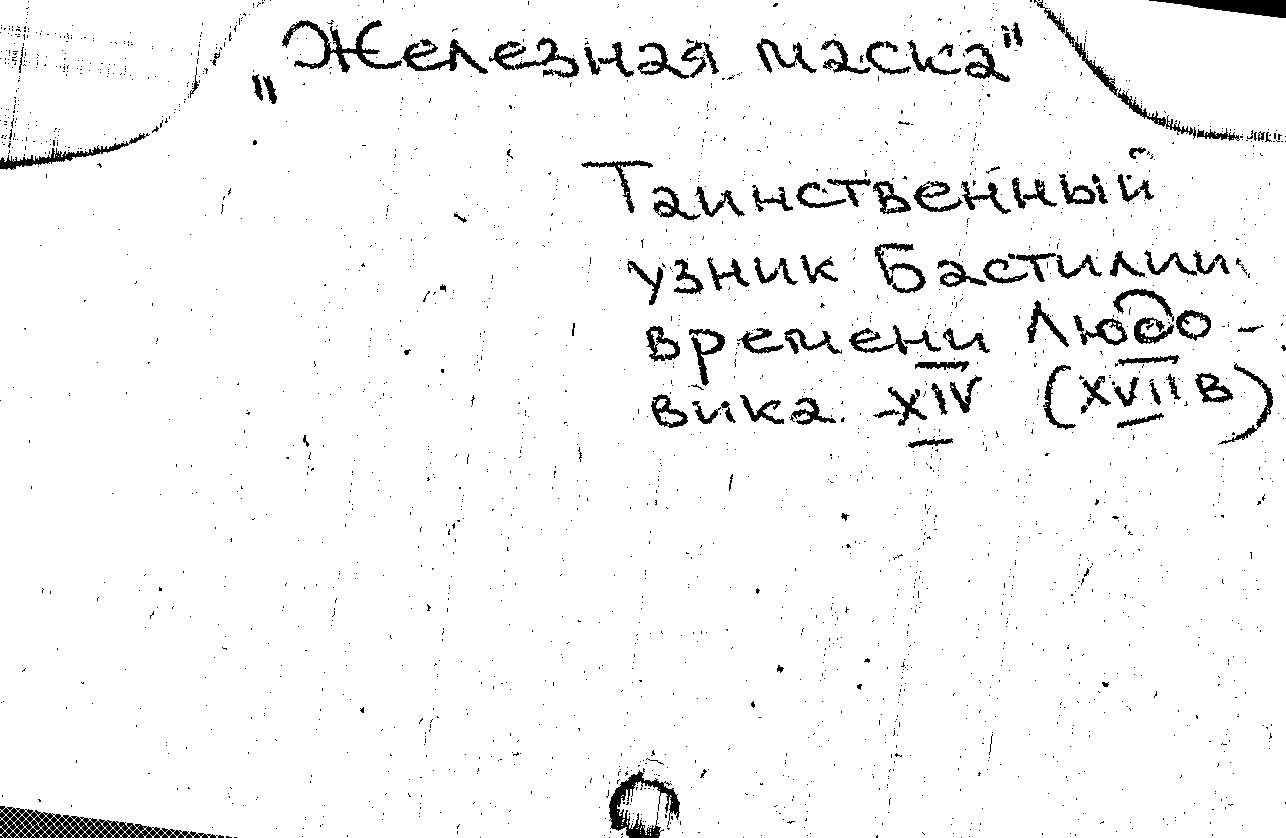 „Железная маска"
Таинственный
узник Бастилии
времени Людо-
вика XIV (XVII в)